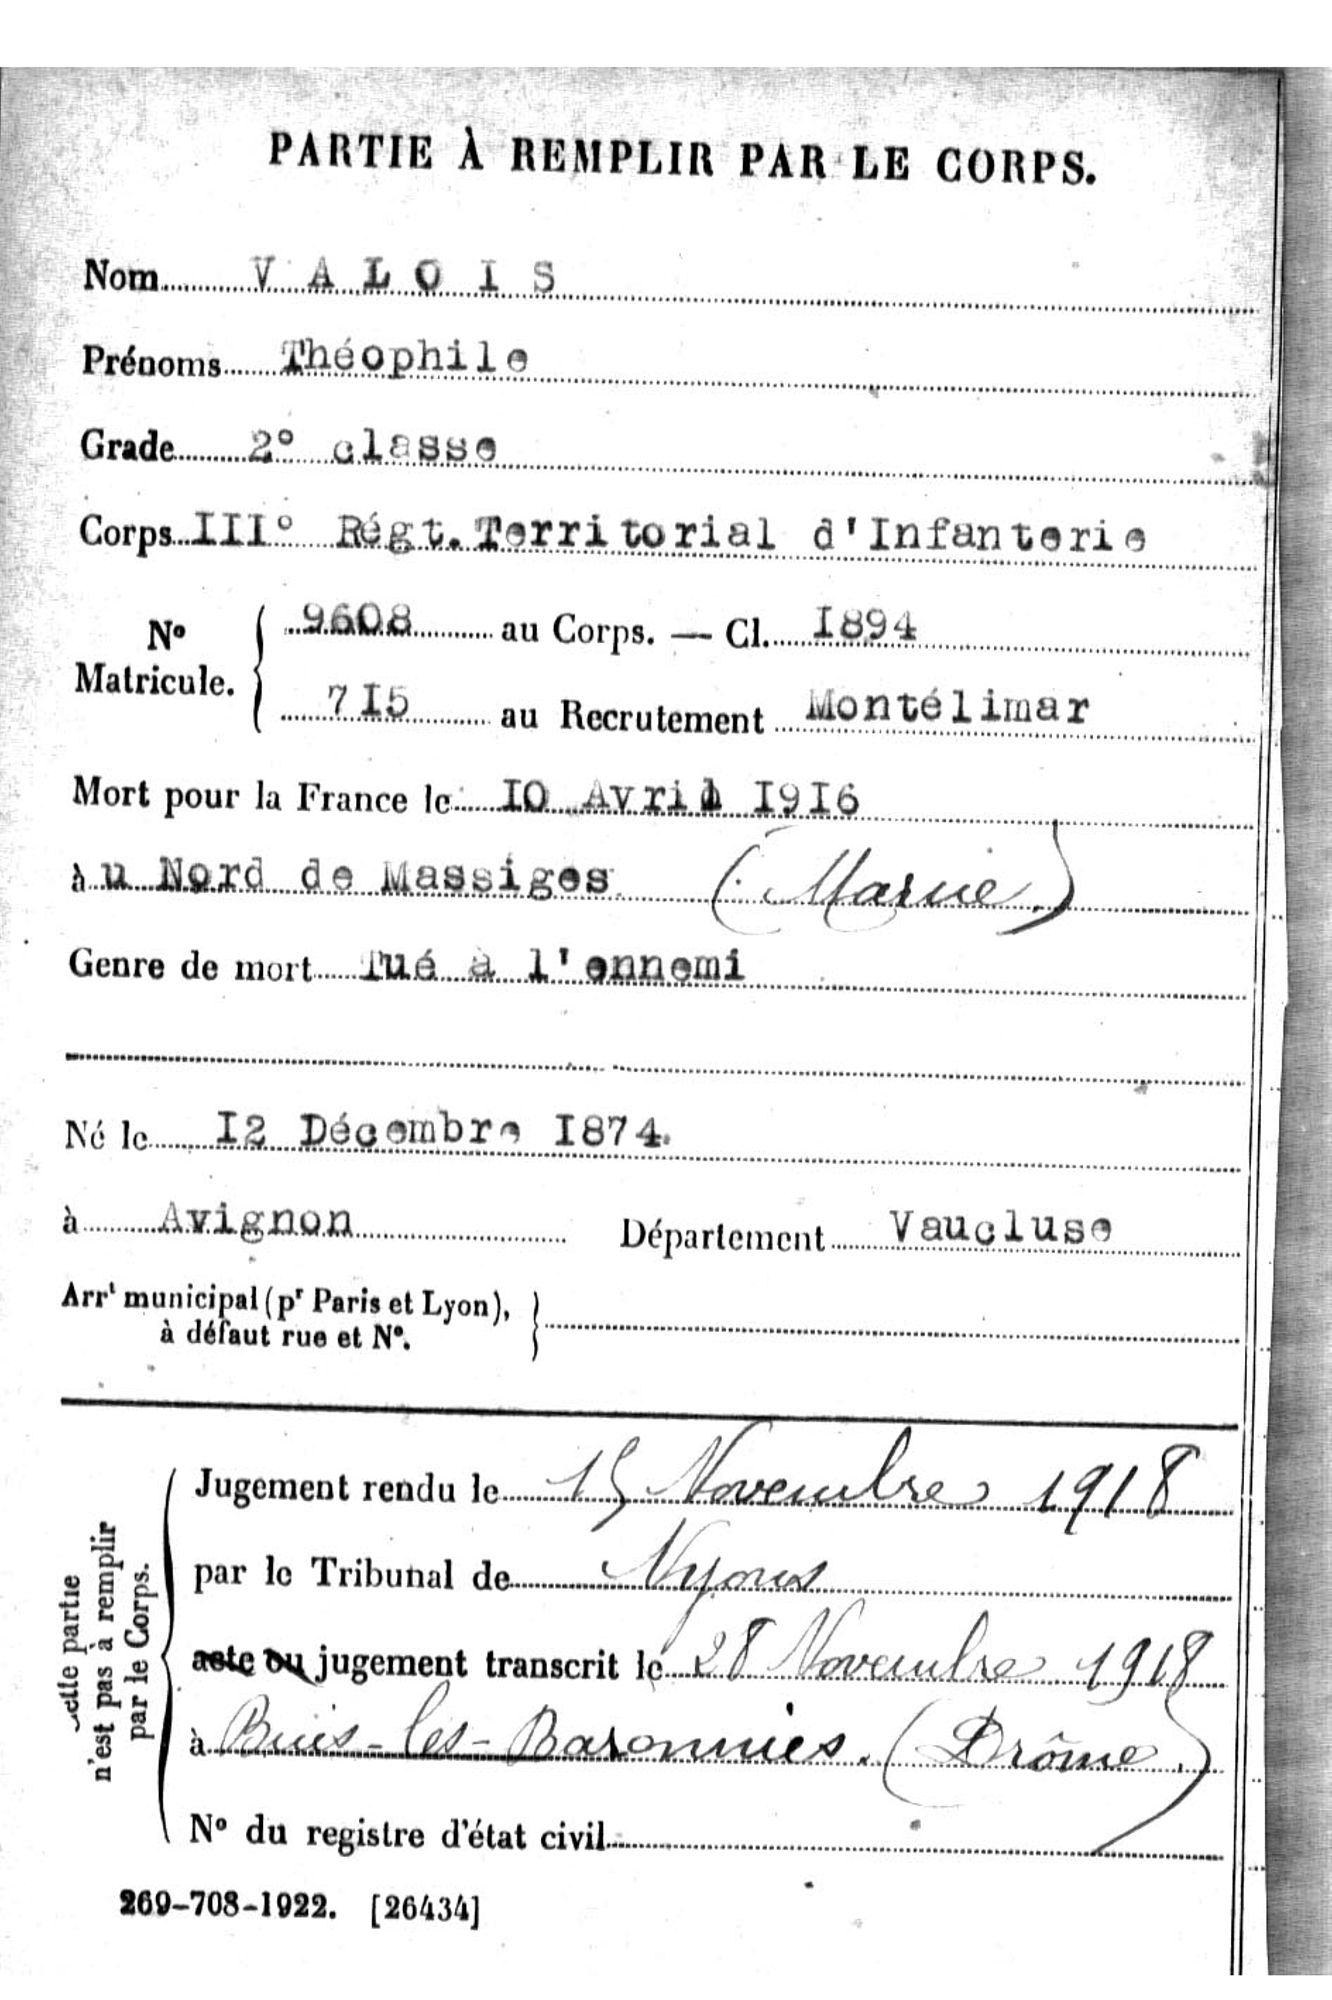 PARTIE À REMPLIR PAR LE CORPS.
Nom VALOIS
Prénoms Théophile
Grade 2° classe
Corps III° Régt. Territorial d'Infanterie
N° Matricule. 9608 au Corps. — Cl. I894
7I5 au Recrutement Montélimar
Mort pour la France le IO Avril I9I6
à u Nord de Massiges (Marne)
Genre de mort Tué à l'ennemi
Né le I2 Décembre I874.
à Avignon Département Vaucluse
Arrt municipal (pr Paris et Lyon),
à défaut rue et N°.
Cette partie
n'est pas à remplir
par le Corps.
Jugement rendu le 15 Novembre 1918
par le Tribunal de Nyons
acte ou jugement transcrit le 28 Novembre 1918
à Buis-les-Baronnies. (Drôme.)
N° du registre d'état civil
269-708-1922. [26434]